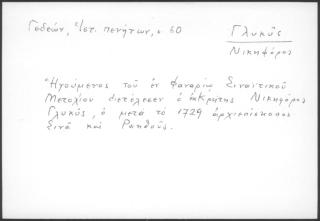 Γεδεών, Ἱστ. πενήτων, σ. 60
Γλυκῦς
Νικηφόρος
Ἡγούμενος τοῦ ἐν Φαναρίῳ Σιναϊτικοῦ
Μετοχίου διετέλεσεν ὁ ἐκ Κρήτης Νικηφόρος
Γλυκῦς, ὁ μετὰ τὸ 1729 ἀρχιεπίσκοπος
Σινᾶ καὶ Ραηθοῦς.